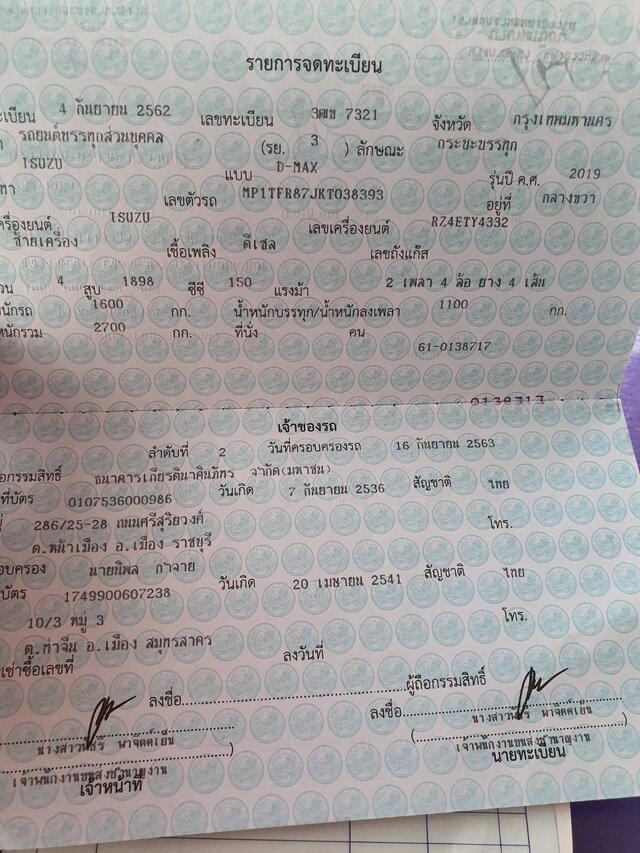 รายการจดทะเบียน
ะเบียน 4 กันยายน 2562 เลขทะเบียน 3ฒฆ 7321 จังหวัด กรุงเทพมหานคร
รถยนต์บรรทุกส่วนบุคคล (รย. 3 ) ลักษณะ กระบะบรรทุก
ISUZU แบบ D-MAX รุ่นปี ค.ศ. 2019
เลขตัวรถ MP1TFR87JKT038393 อยู่ที่ กลางขวา
ครื่องยนต์ ISUZU เลขเครื่องยนต์ RZ4ETY4332
ซ้ายเครื่อง เชื้อเพลิง ดีเซล เลขถังแก๊ส
วน 4 สูบ 1898 ซีซี 150 แรงม้า 2 เพลา 4 ล้อ ยาง 4 เส้น
นักรถ 1600 กก. น้ำหนักบรรทุก/น้ำหนักลงเพลา 1100 กก.
หนักรวม 2700 กก. ที่นั่ง คน
61-0138717
เจ้าของรถ
ลำดับที่ 2 วันที่ครอบครองรถ 16 กันยายน 2563
ือกรรมสิทธิ์ ธนาคารเกียรตินาคินภัทร จำกัด(มหาชน)
ที่บัตร 0107536000986 วันเกิด 7 กันยายน 2536 สัญชาติ ไทย
286/25-28 ถนนศรีสุริยวงศ์ โทร.
ต.หน้าเมือง อ.เมือง ราชบุรี
อบครอง นายนิพล กาจาย
บัตร 1749900607238 วันเกิด 20 เมษายน 2541 สัญชาติ ไทย
10/3 หมู่ 3 โทร.
ต.ท่าจีน อ.เมือง สมุทรสาคร
เช่าซื้อเลขที่ ลงวันที่
ลงชื่อ ผู้ถือกรรมสิทธิ์
ลงชื่อ
เจ้าพนักงานขนส่งชำนาญงาน เจ้าพนักงานขนส่งชำนาญงาน
เจ้าหน้าที่ นายทะเบียน